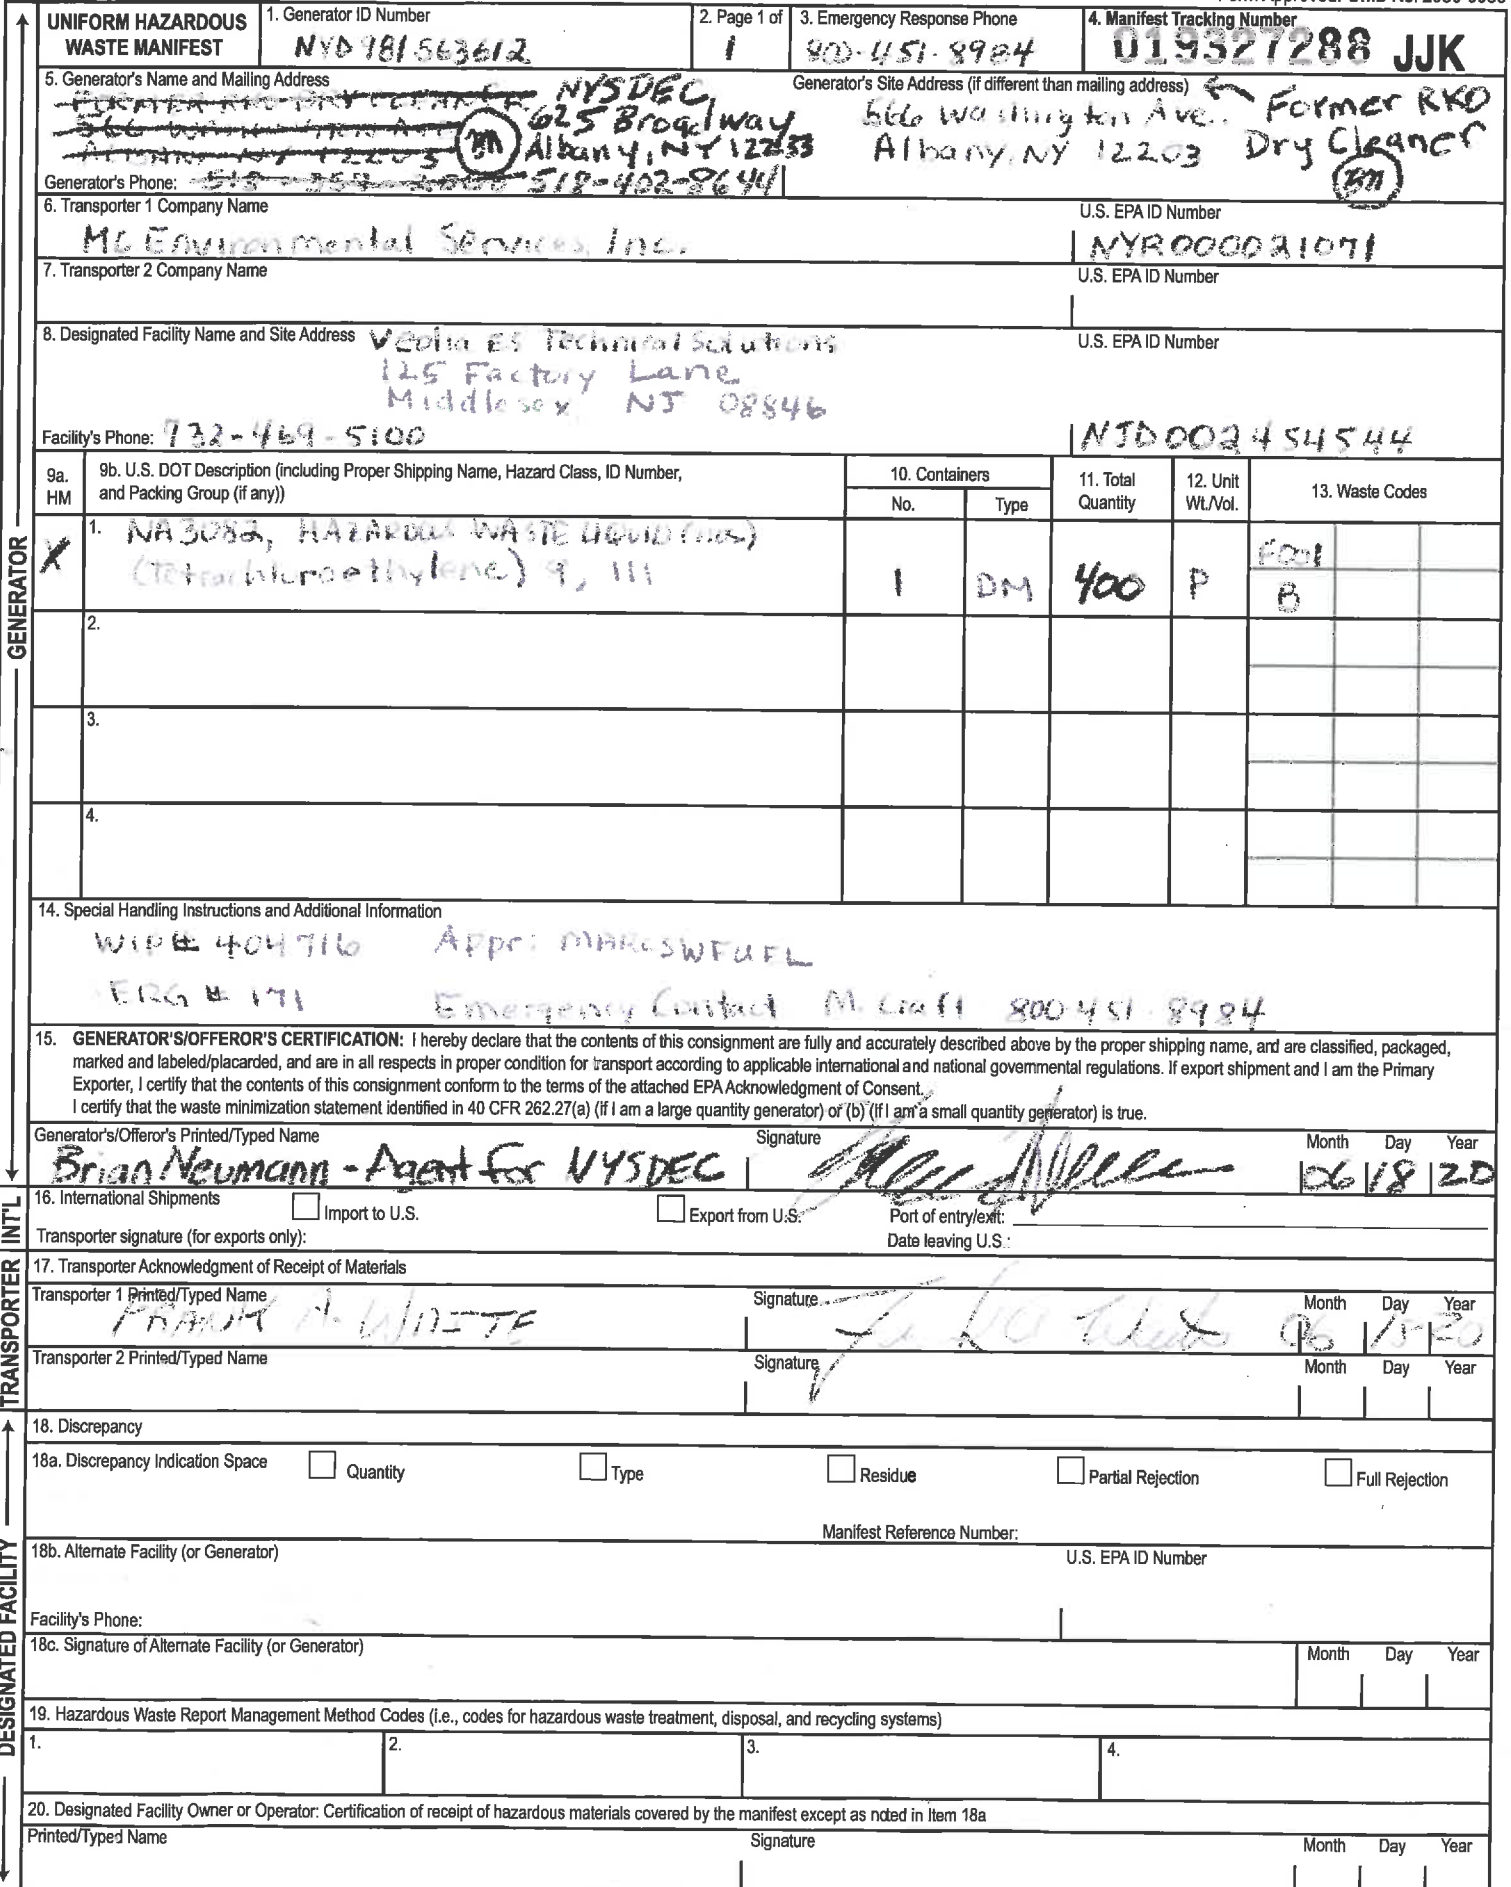 UNIFORM HAZARDOUS WASTE MANIFEST
1. Generator ID Number
NYD981563612
2. Page 1 of
1
3. Emergency Response Phone
800-451-8984
4. Manifest Tracking Number
019327288 JJK
5. Generator's Name and Mailing Address
FORMER RKO DRY CLEANER
566 WASHINGTON AVE
ALBANY NY 12203
NYSDEC
625 Broadway
Albany, NY 12233
BN
Generator's Phone: 518-402-8644
Generator's Site Address (if different than mailing address)
566 Washington Ave.
Albany, NY 12203
Former RKO
Dry Cleaner
BN
6. Transporter 1 Company Name
U.S. EPA ID Number
Environmental Services, Inc.
NYR000021071
7. Transporter 2 Company Name
U.S. EPA ID Number
8. Designated Facility Name and Site Address
Veolia ES Technical Solutions
125 Factory Lane
Middlesex NJ 08846
U.S. EPA ID Number
Facility's Phone: 732-469-5100
NJD002454544
9a. HM
9b. U.S. DOT Description (including Proper Shipping Name, Hazard Class, ID Number, and Packing Group (if any))
10. Containers
No.
Type
11. Total Quantity
12. Unit Wt./Vol.
13. Waste Codes
X
1. NA3082, HAZARDOUS WASTE LIQUID (nos)
(Tetrachloroethylene) 9, III
1
DM
400
P
F001
B
2.
3.
4.
14. Special Handling Instructions and Additional Information
WIP# 404716 Appr: MARCSWFUEL
ERG # 171 Emergency Contact M. Craft 800-451-8984
15. GENERATOR'S/OFFEROR'S CERTIFICATION: I hereby declare that the contents of this consignment are fully and accurately described above by the proper shipping name, and are classified, packaged,
marked and labeled/placarded, and are in all respects in proper condition for transport according to applicable international and national governmental regulations. If export shipment and I am the Primary
Exporter, I certify that the contents of this consignment conform to the terms of the attached EPA Acknowledgment of Consent.
I certify that the waste minimization statement identified in 40 CFR 262.27(a) (if I am a large quantity generator) or (b) (if I am a small quantity generator) is true.
Generator's/Offeror's Printed/Typed Name
Signature
Month Day Year
Brian Neumann - Agent for NYSDEC
06 18 20
16. International Shipments
Import to U.S.
Export from U.S.
Port of entry/exit:
Transporter signature (for exports only):
Date leaving U.S.:
17. Transporter Acknowledgment of Receipt of Materials
Transporter 1 Printed/Typed Name
Signature
Month Day Year
FRANK A. WHITE
06
20
Transporter 2 Printed/Typed Name
Signature
Month Day Year
18. Discrepancy
18a. Discrepancy Indication Space
Quantity
Type
Residue
Partial Rejection
Full Rejection
Manifest Reference Number:
18b. Alternate Facility (or Generator)
U.S. EPA ID Number
Facility's Phone:
18c. Signature of Alternate Facility (or Generator)
Month Day Year
19. Hazardous Waste Report Management Method Codes (i.e., codes for hazardous waste treatment, disposal, and recycling systems)
1.
2.
3.
4.
20. Designated Facility Owner or Operator: Certification of receipt of hazardous materials covered by the manifest except as noted in Item 18a
Printed/Typed Name
Signature
Month Day Year
GENERATOR
INT'L
TRANSPORTER
DESIGNATED FACILITY